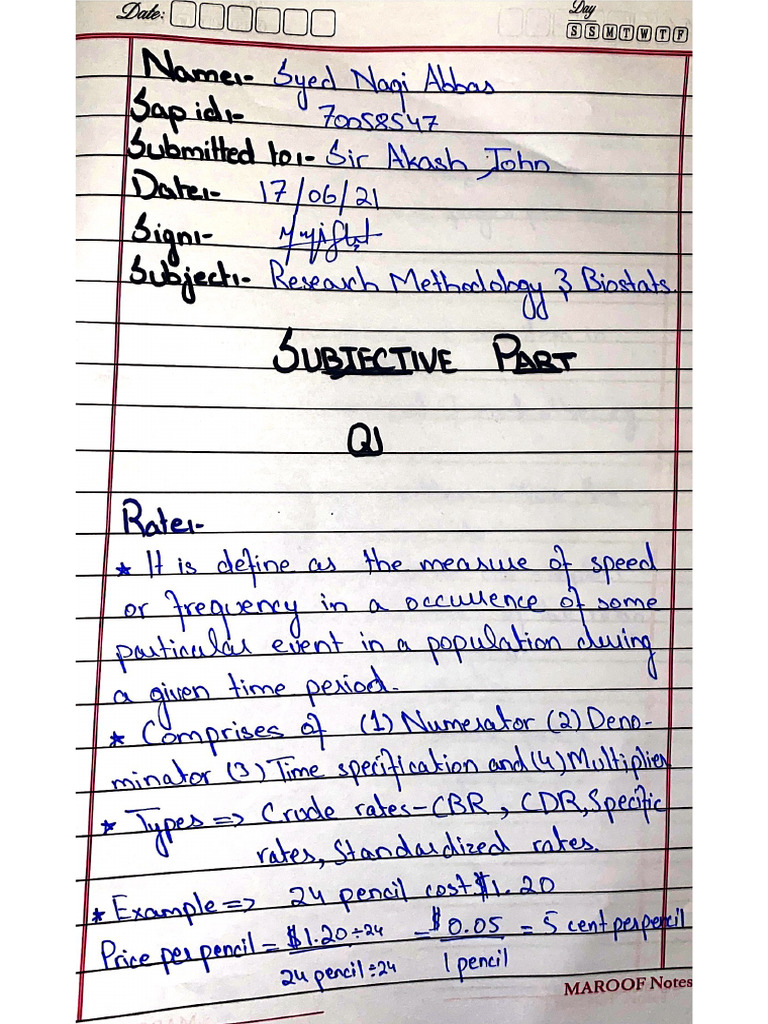 Date:
Day
S S M T W T F
Name:- Syed Naqi Abbas
Sap id:- 70058547
Submitted to:- Sir Akash John
Date:- 17/06/21
Sign:-
Subject:- Research Methodology & Biostats.
SUBJECTIVE PART
Q1
Rate:-
* It is define as the measure of speed
or frequency in a occurrence of some
particular event in a population during
a given time period.
* Comprises of (1) Numerator (2) Deno-
minator (3) Time specification and (4) Multiplier
* Types => Crude rates - CBR, CDR, Specific
rates, Standardized rates.
* Example => 24 pencil cost $1.20
Price per pencil = $1.20 ÷ 24 = $0.05 = 5 cent per pencil
24 pencil ÷ 24 1 pencil
MAROOF Notes